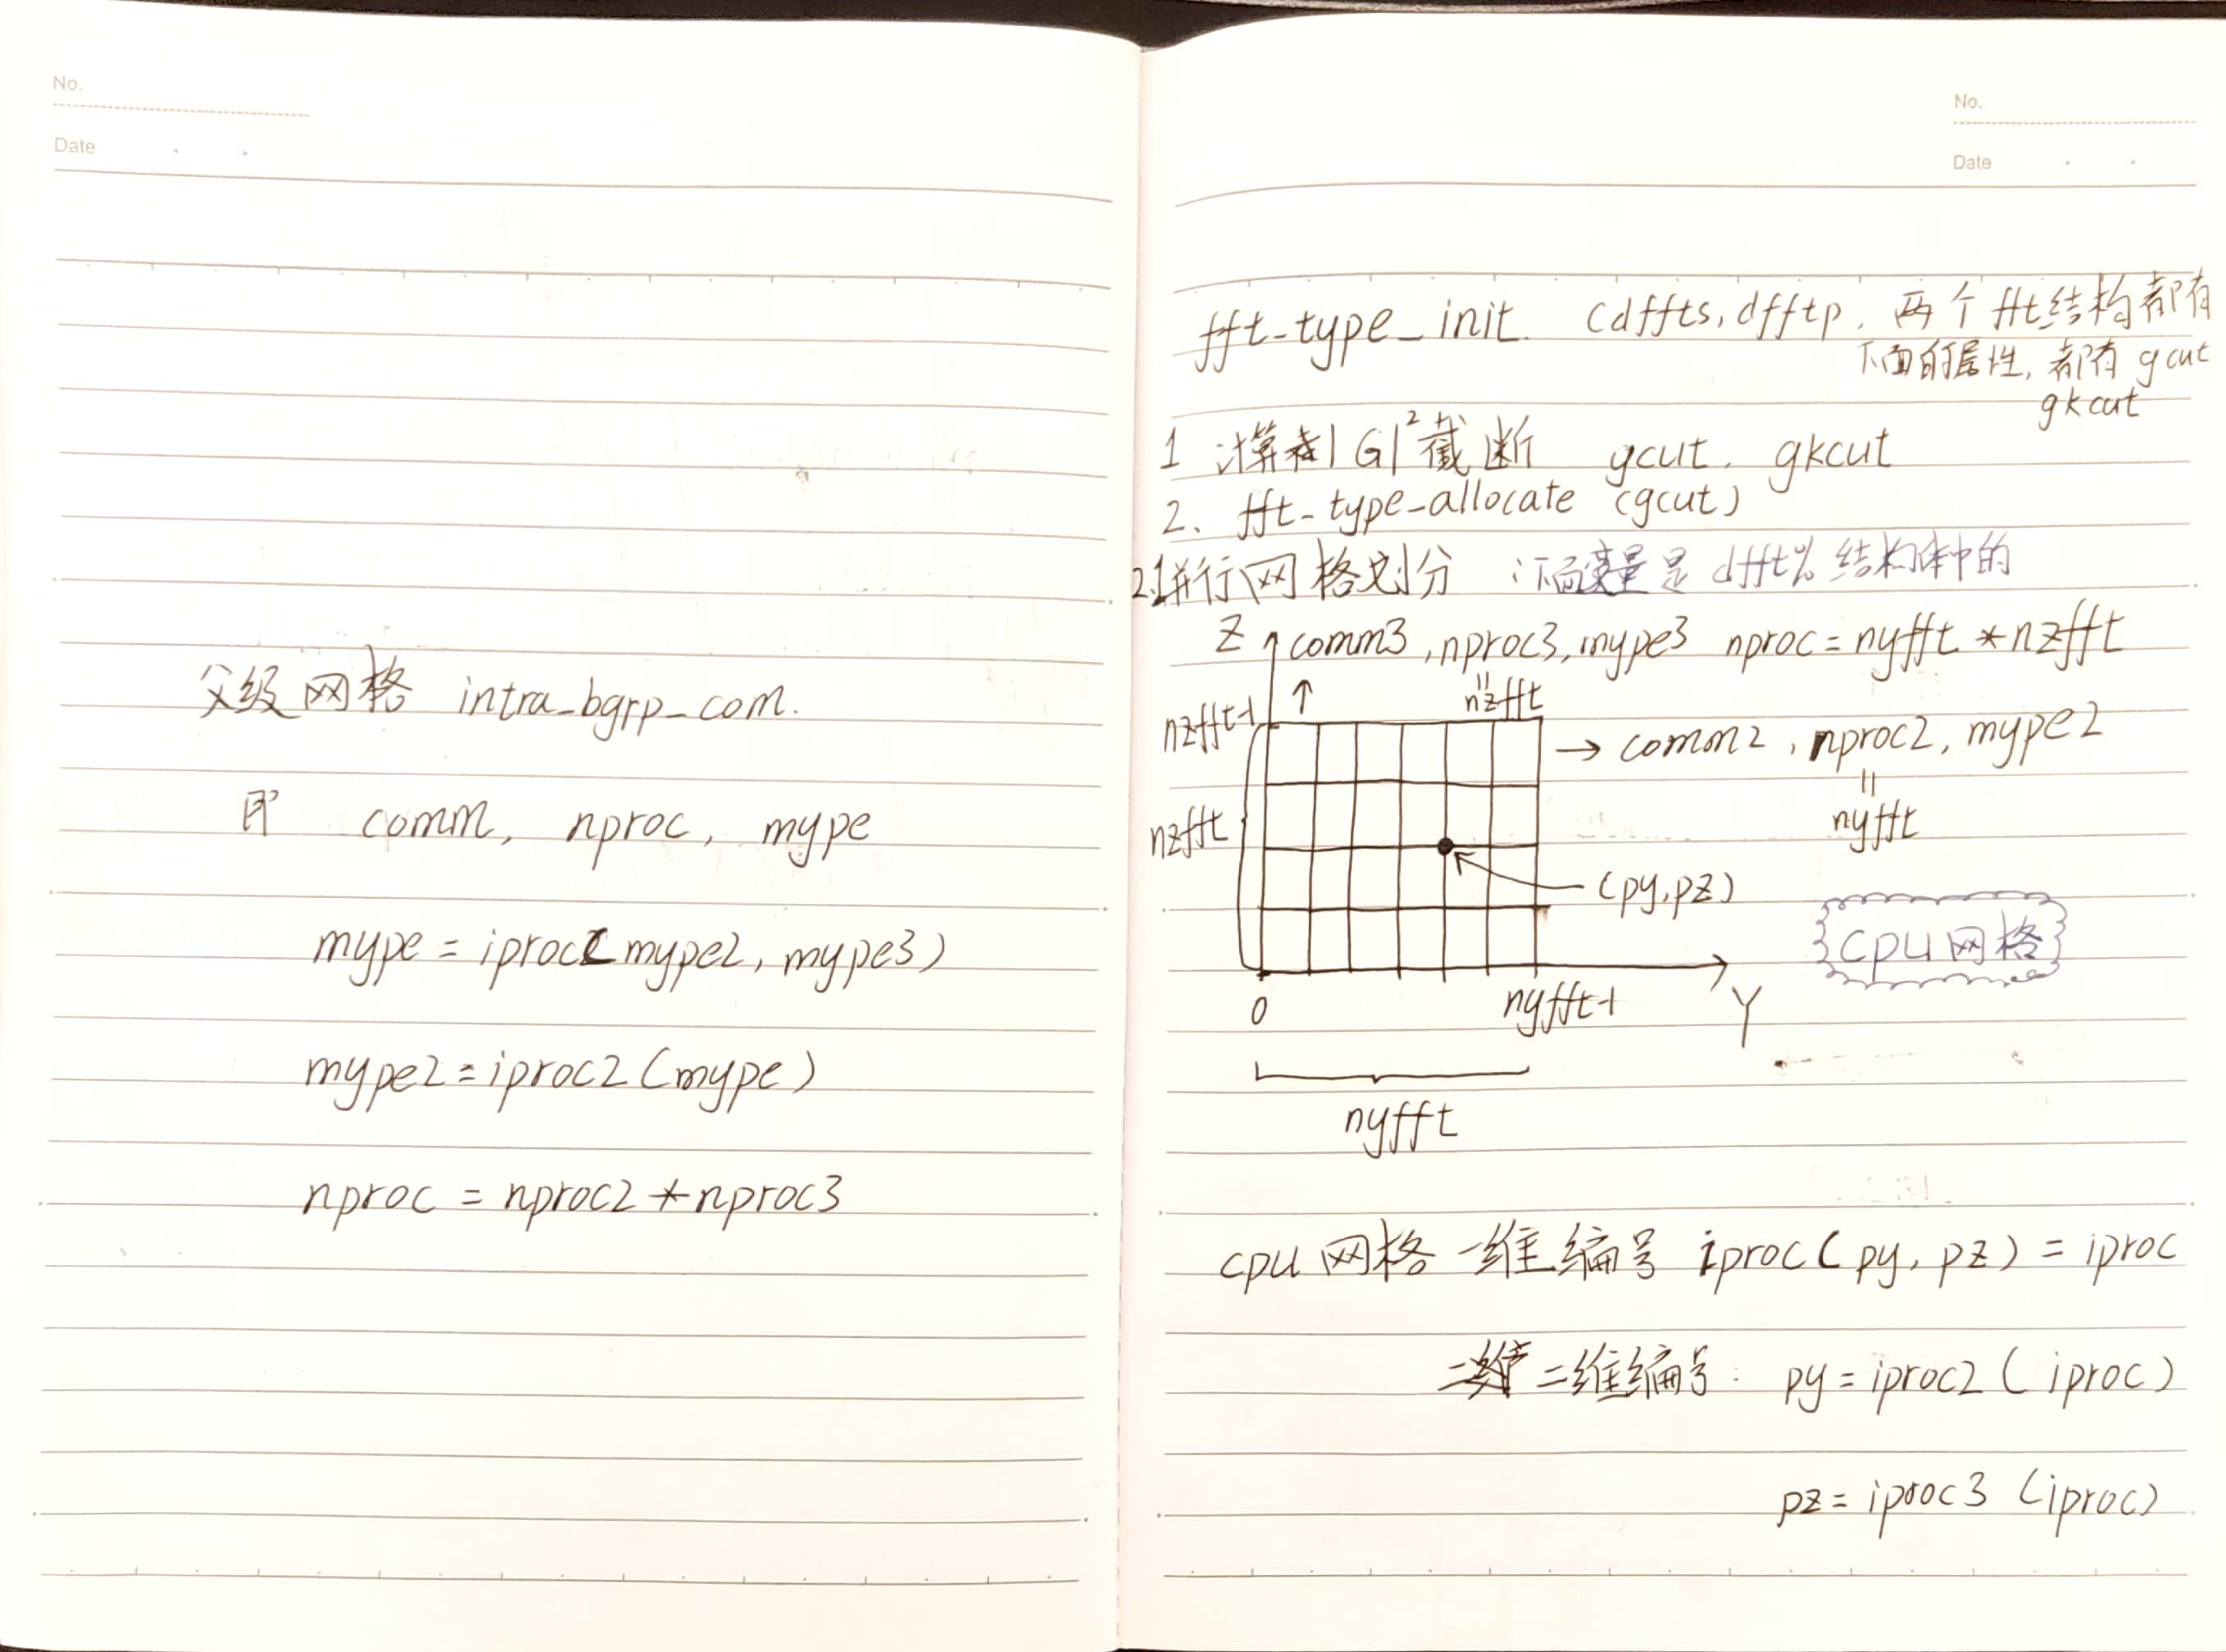 No.
Date
父级网格 intra_bgrp_com.
即 comm, nproc, mype
mype = iproc( mype2, mype3)
mype2 = iproc2 (mype)
nproc = nproc2 * nproc3
No.
Date
fft_type_init. (dffts, dfftp, 两个 fft结构都有
下面的属性, 都有 gcut
gkcut
1 计算 |G|² 截断 gcut. gkcut
2. fft_type_allocate (gcut)
2.1 并行网格划分 :下面变量是 dfft% 结构体中的
Z comm3, nproc3, mype3 nproc = nyfft * nzfft
↑ = nzfft
nzfft-1
→ comm2, nproc2, mype2
=
nzfft nyfft
(py, pz)
cpu 网格
0 nyfft-1 Y
nyfft
cpu 网格 一维编号 iproc (py, pz) = iproc
二维编号: py = iproc2 (iproc)
pz = iproc3 (iproc)